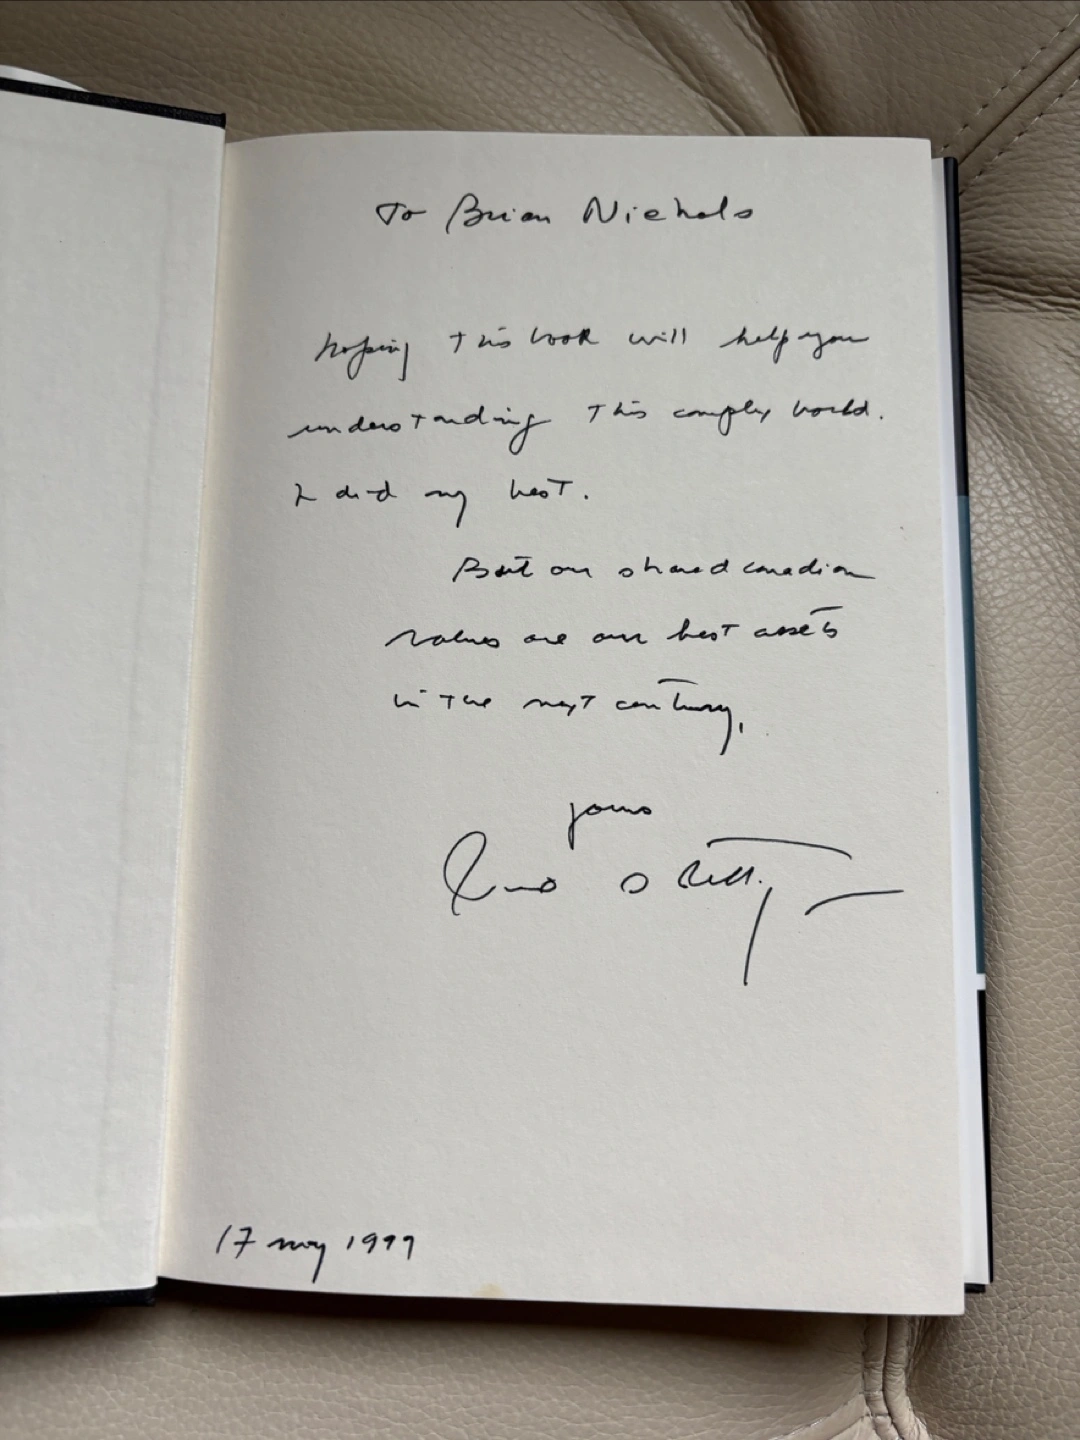 To Brian Nichols
hoping this book will help you
understanding this complex world.
I did my best.
But our shared canadian
values are our best assets
in the next century,
yours
17 may 1999